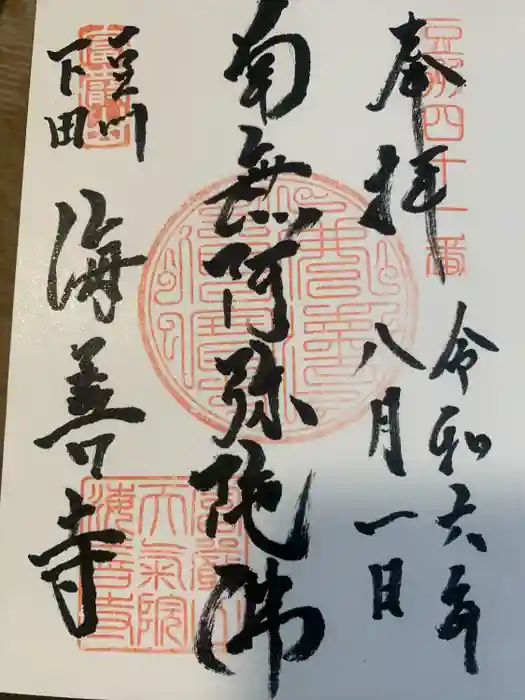 奉拝
令和六年
八月一日
南無阿弥陀佛
豆州
下田
海善寺